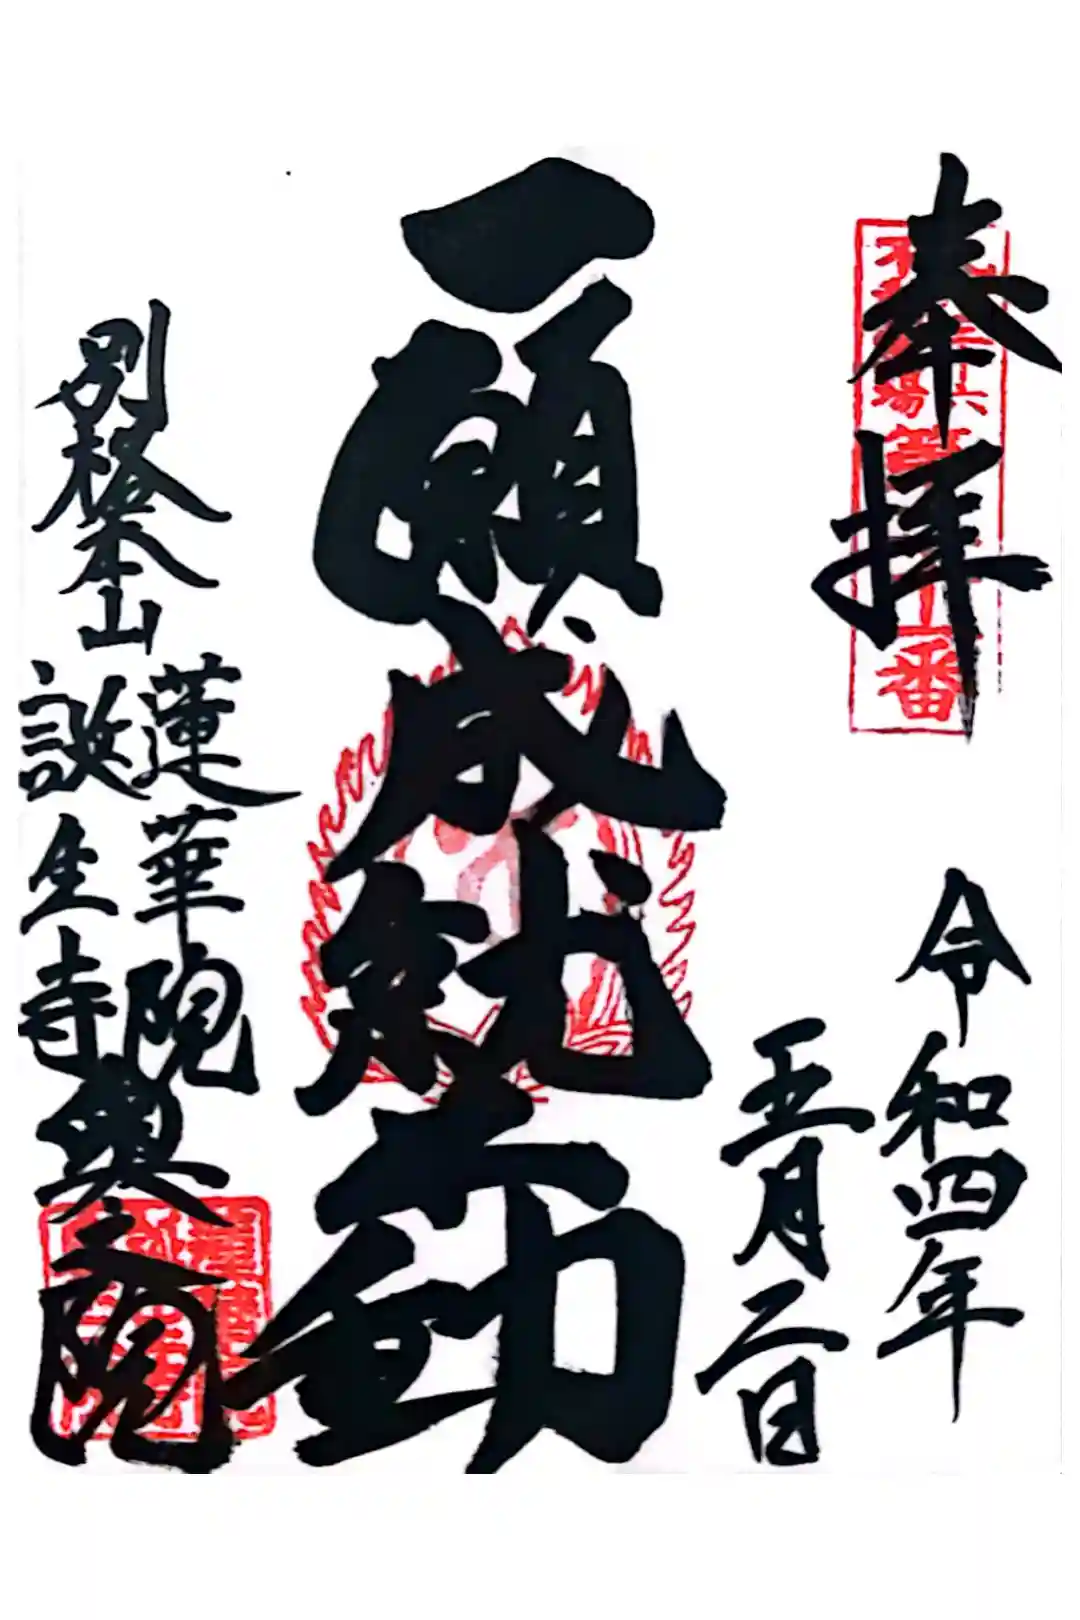 奉拝
令和四年
五月二日
一願成就
別格本山
蓮華院
誕生寺
奥之院